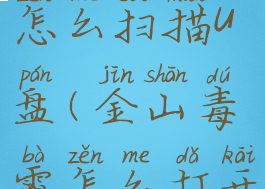 怎么扫描U
pán jīn shān dú
盘(金山毒
bà zěn me dǎ kāi
霸怎么打开